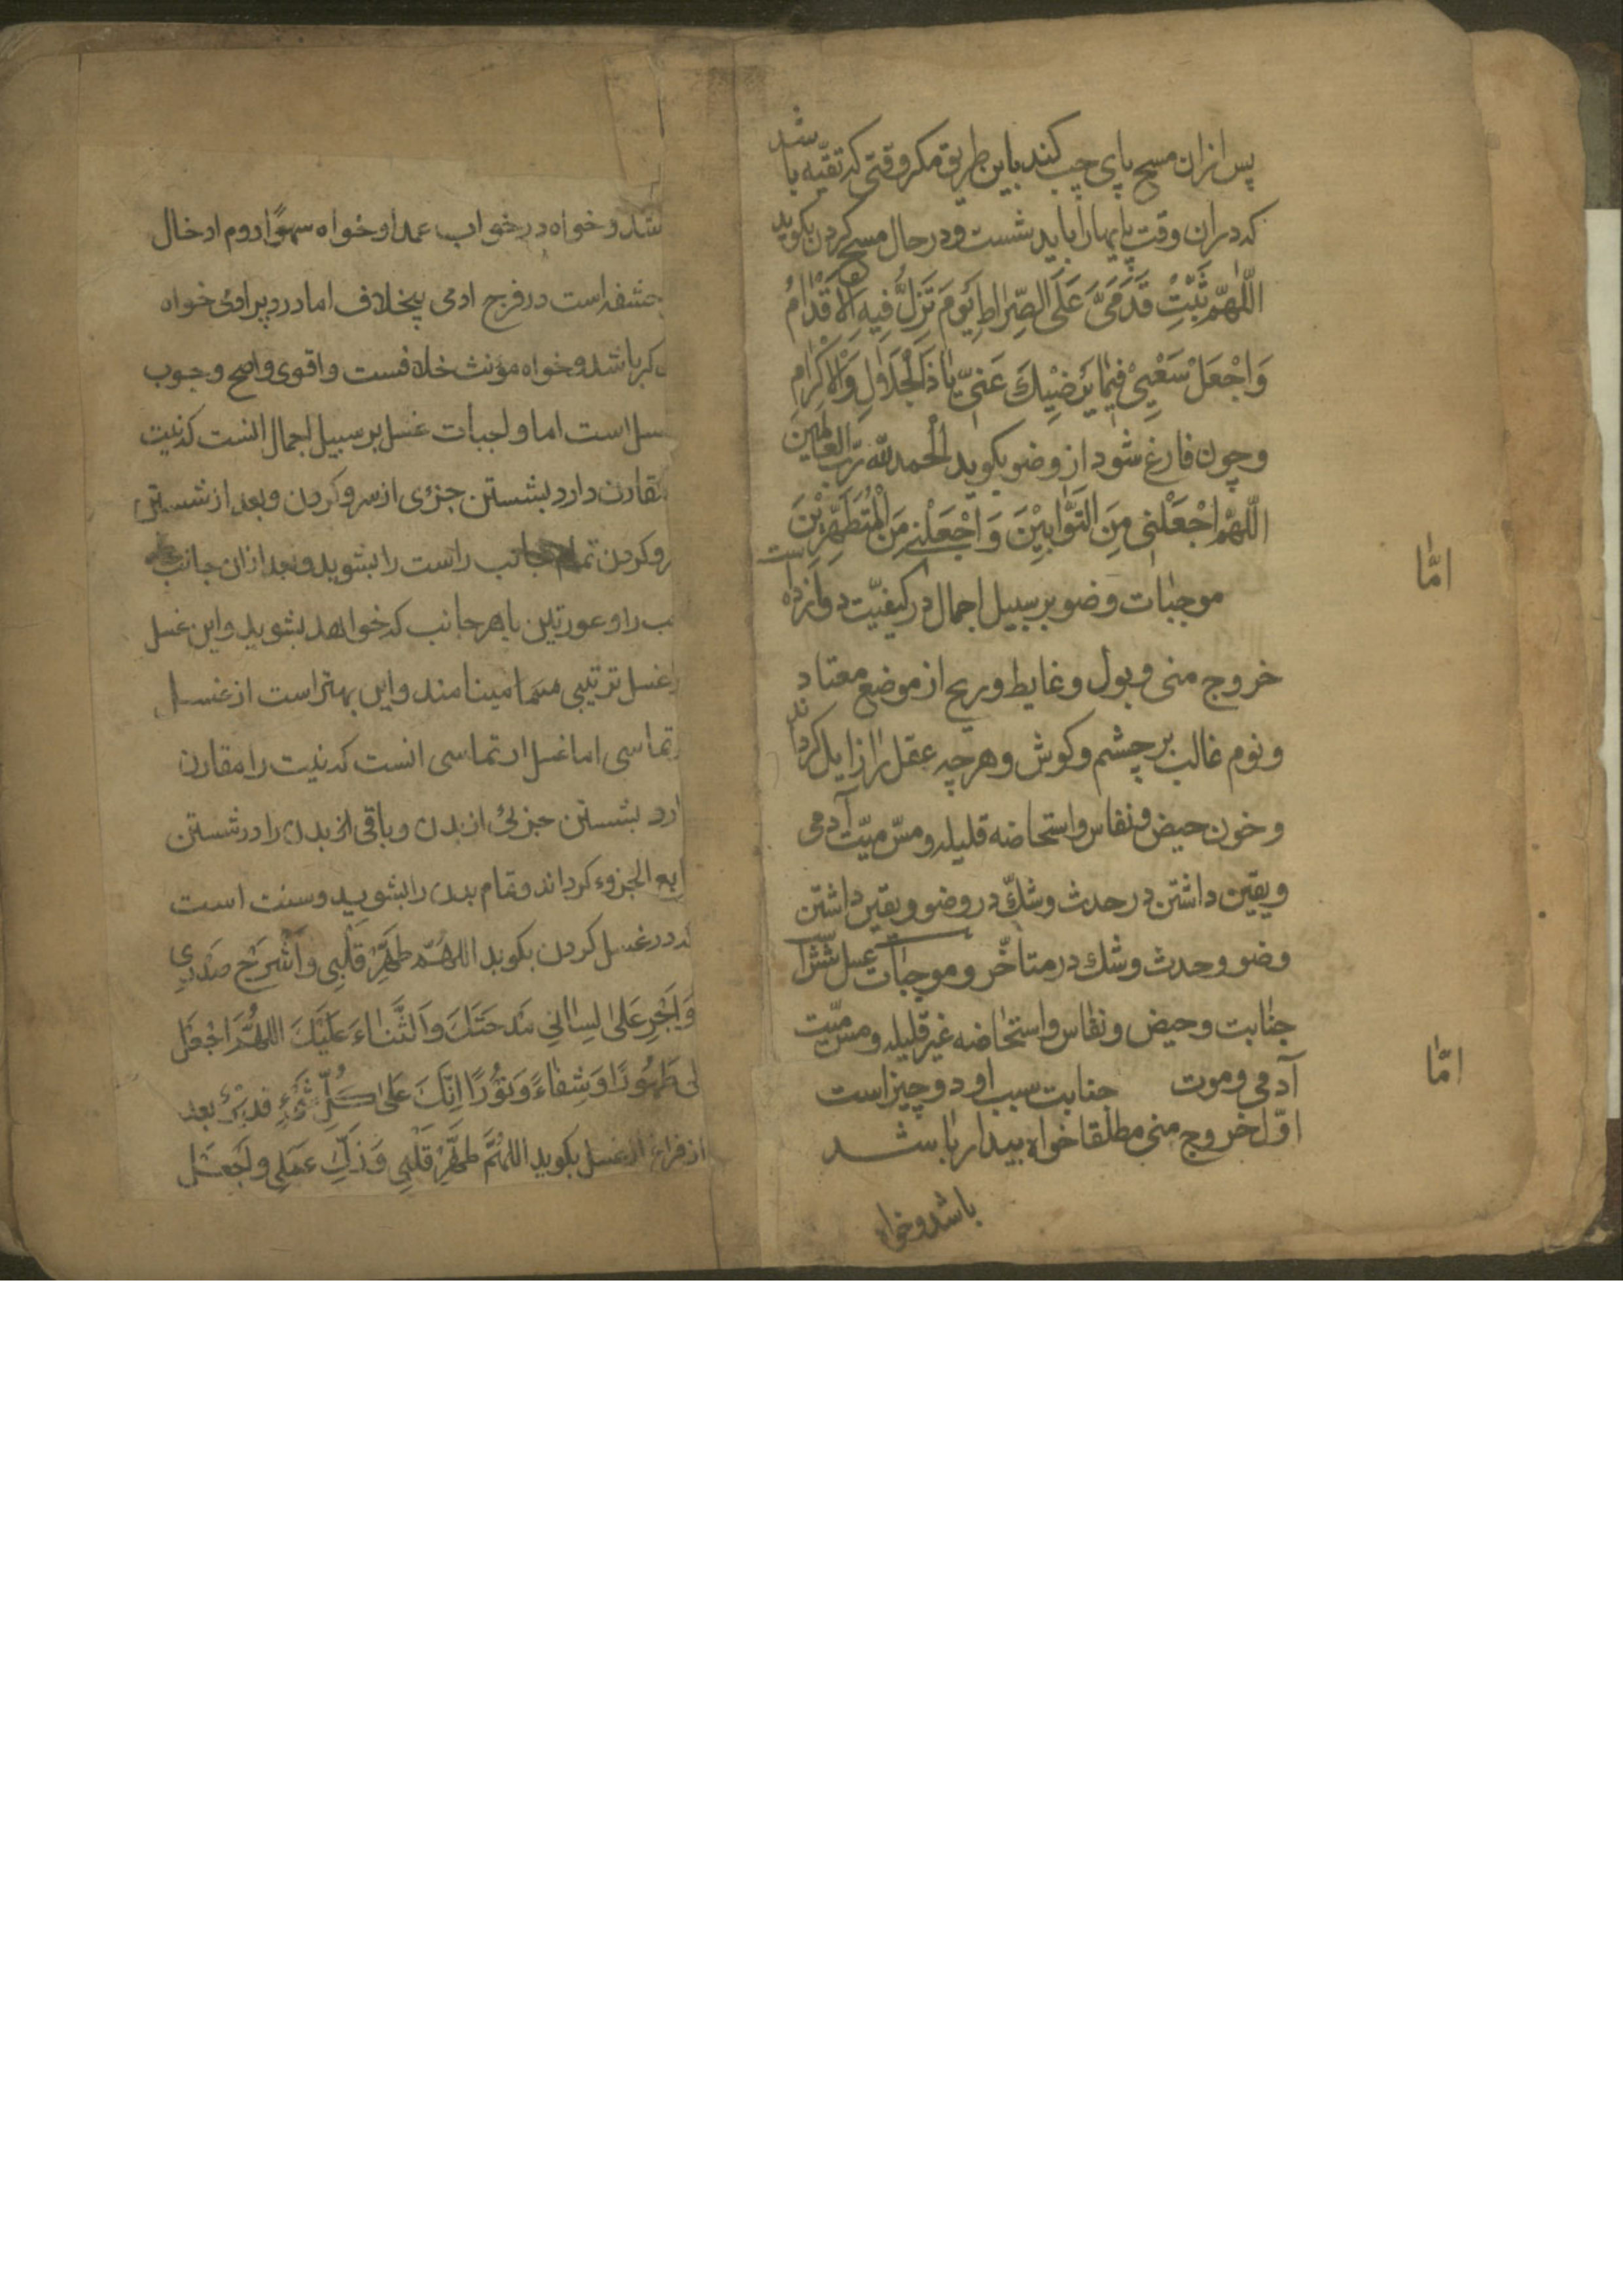 پس ازان مسح پای چپ کند باین طریق مکر وقتی که تقیّه باشد
که دران وقت پایهارا باید شست و در حال مسح کردن بکوید
اللّٰهمّ ثَبِّتْ قَدَمَیَّ عَلَی الصِّرَاطِ یَوْمَ تَزِلُّ فِیهِ الْاَقْدَامُ
وَاجْعَلْ سَعْیِیْ فِیْمَا یُرْضِیْكَ عَنّیْ یَا ذَالْجَلَالِ وَالْاِکْرَامِ
وچون فارغ شود از وضو بکوید اَلْحمد للّٰه ربّ العالمین
اللّٰهمّ اجْعَلْنِی مِنَ التَوَّابِیْنَ وَاجْعَلْنِی مِنَ الْمُتَطَهِّرِیْنَ
امّا
موجبات وضو بر سبیل اجمال در کیفیّت دوازده است
خروج منی وبول وغایط وریح از موضع معتاد
ونوم غالب بر چشم وکوش وهرچه عقل را زایل کرداند
وخون حیض ونفاس واستحاضه قلیله ومسّ میّت آدمی
ویقین داشتن در حدث وشكّ در وضو ویقین داشتن
وضو وحدث وشك در متأخّر وموجبات غسل شش
جنابت وحیض ونفاس واستحاضه غیر قلیله ومسّ میّت
آدمی وموت
امّا
جنابت سبب او دو چیز است
اوّل خروج منی مطلقا خواه بیدار باشد
باشد وخواه
شد وخواه در خواب عمدا وخواه سهوًا دوم ادخال
حشفه است در فرج ادمی بیخلاف اما در دبر ادمی خواه
کر باشد وخواه مؤنث خلافست واقوی واصح وجوب
سل است اما واجبات غسل بر سبیل اجمال انست که نیت
مقارن دارد بشستن جزوی از سر وکردن وبعد از شستن
روکردن تمام جانب راست را بشوید وبعد ازان جانب
ب را وعورتین باهر جانب که خواهد بشوید واین غسل
غسل ترتیبی مینامند واین بهتر است از غسل
تماسی اما غسل ارتماسی انست که نیت را مقارن
ارد بشستن جزئی از بدن وباقی از بدن را در شستن
ابع الجزوء کرداند وتمام بدن را بشوید وسنت است
که در غسل کردن بکوید اللهمّ طَهِّرْ قَلْبِی وَاشْرَحْ صَدْرِی
وَاَجْرِ عَلٰی لِسَانِی مَدْحَتَكَ وَالثَّنَاءَ عَلَیْكَ اللهُمَّ اجْعَل
لی طَهُورًا وَشِفَاءً وَنُوْرًا اِنَّكَ عَلٰی کُلِّ شَیْءٍ قَدِیْرٌ بعد
از فراغ از غسل بکوید اللهُمَّ طَهِّرْ قَلْبِی وَزَكِّ عَمَلِی واجْعَل